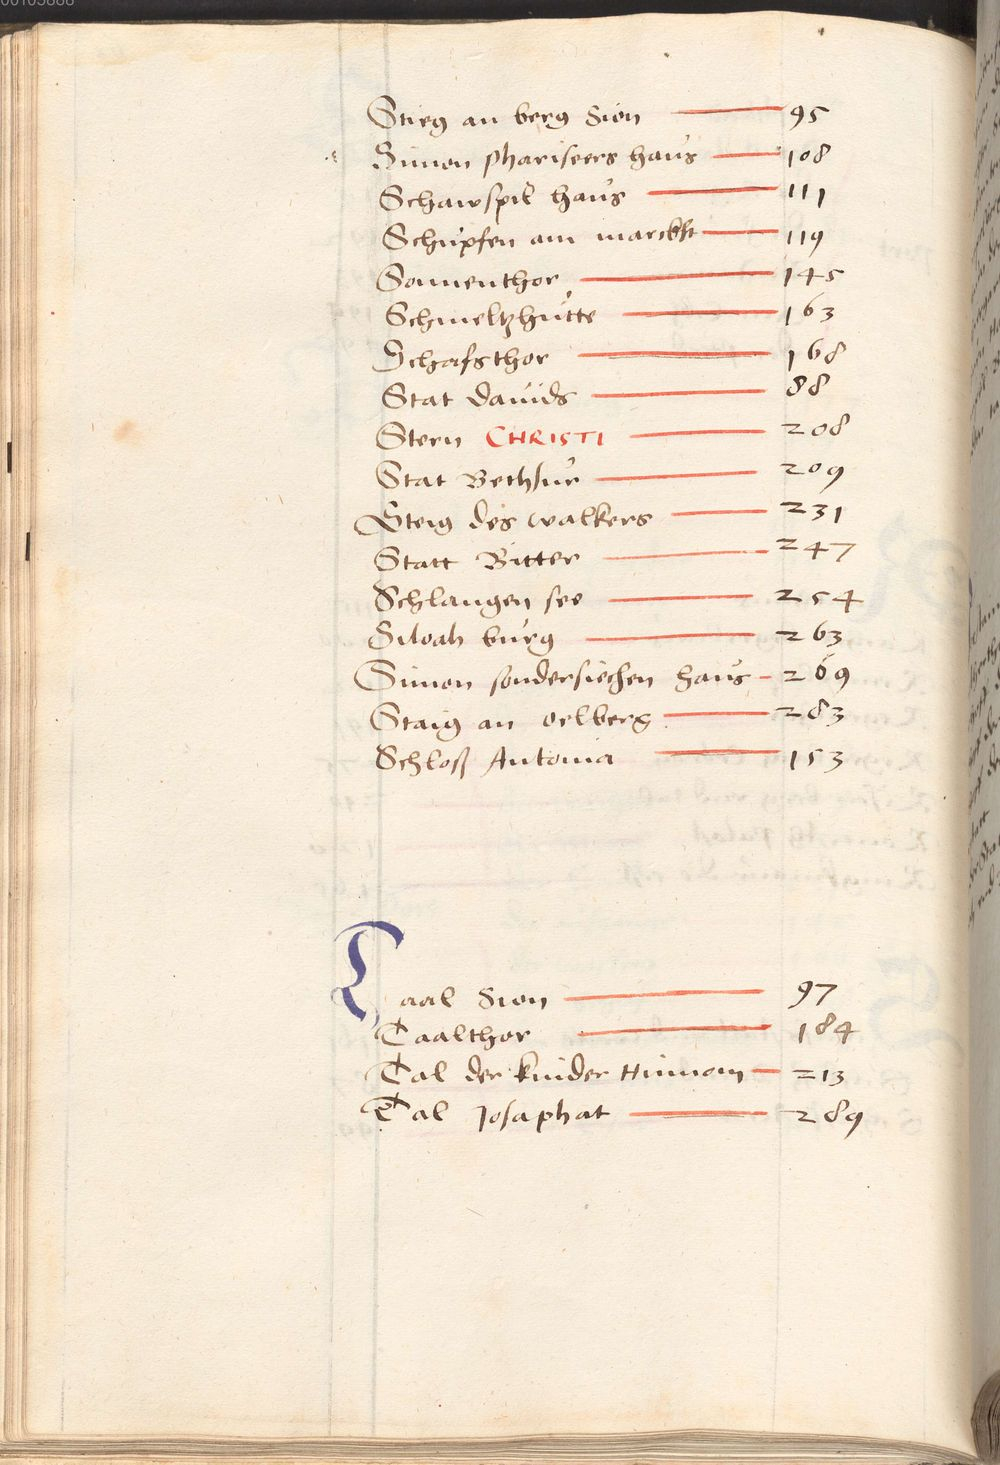 00103888
Stieg an berg Sion 95
Simon phariseers haus 108
Schawspil haus 111
Schupfen am marckht 119
Sonnenthor 145
Schmeltzhütte 163
Schafsthor 168
Stat Dauids 88
Stern CHRISTI 208
Stat Bethsur 209
Steig des walkers 231
Statt Bitter 247
Schlangen see 254
Siloah burg 263
Simon sondersiechen haus 269
Staig an oelberg 283
Schloß Antonia 153
Taal Sion 97
Taalthor 184
Tal der kinder Hinnom 213
Tal Josaphat 289